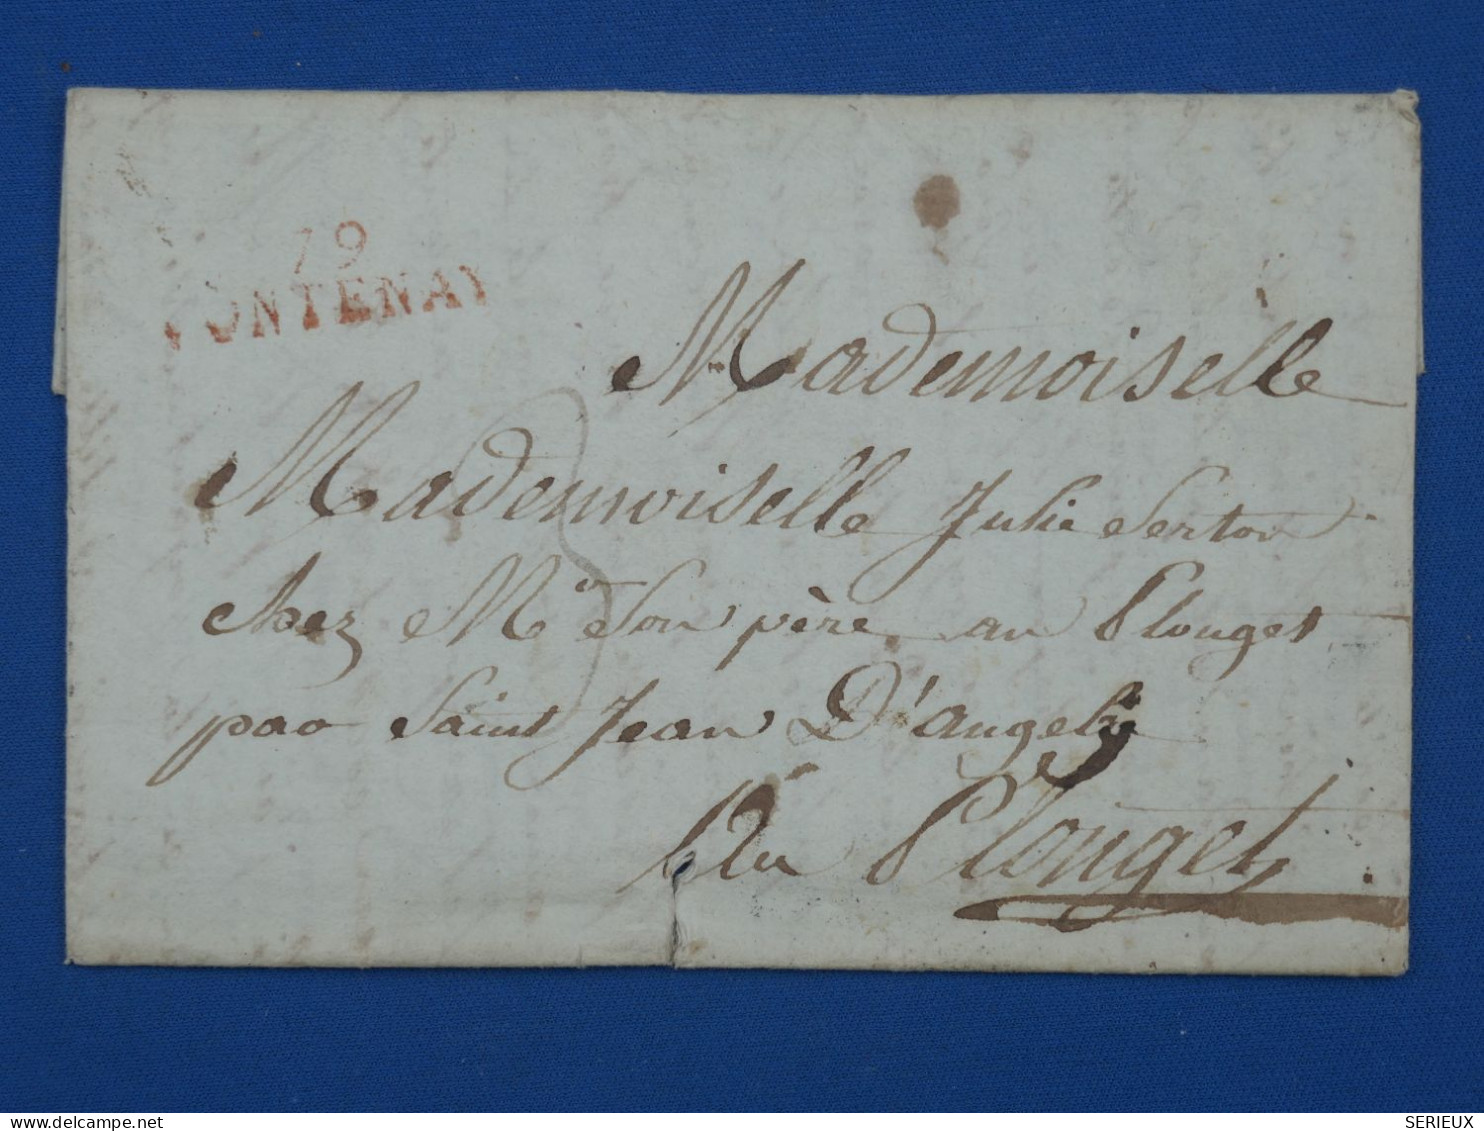 79
FONTENAY
Mademoiselle
Mademoiselle Julie Serton
chez Mr Son père au Plouget
par Saint Jean D'angely
Au Plouget
SERIEUX